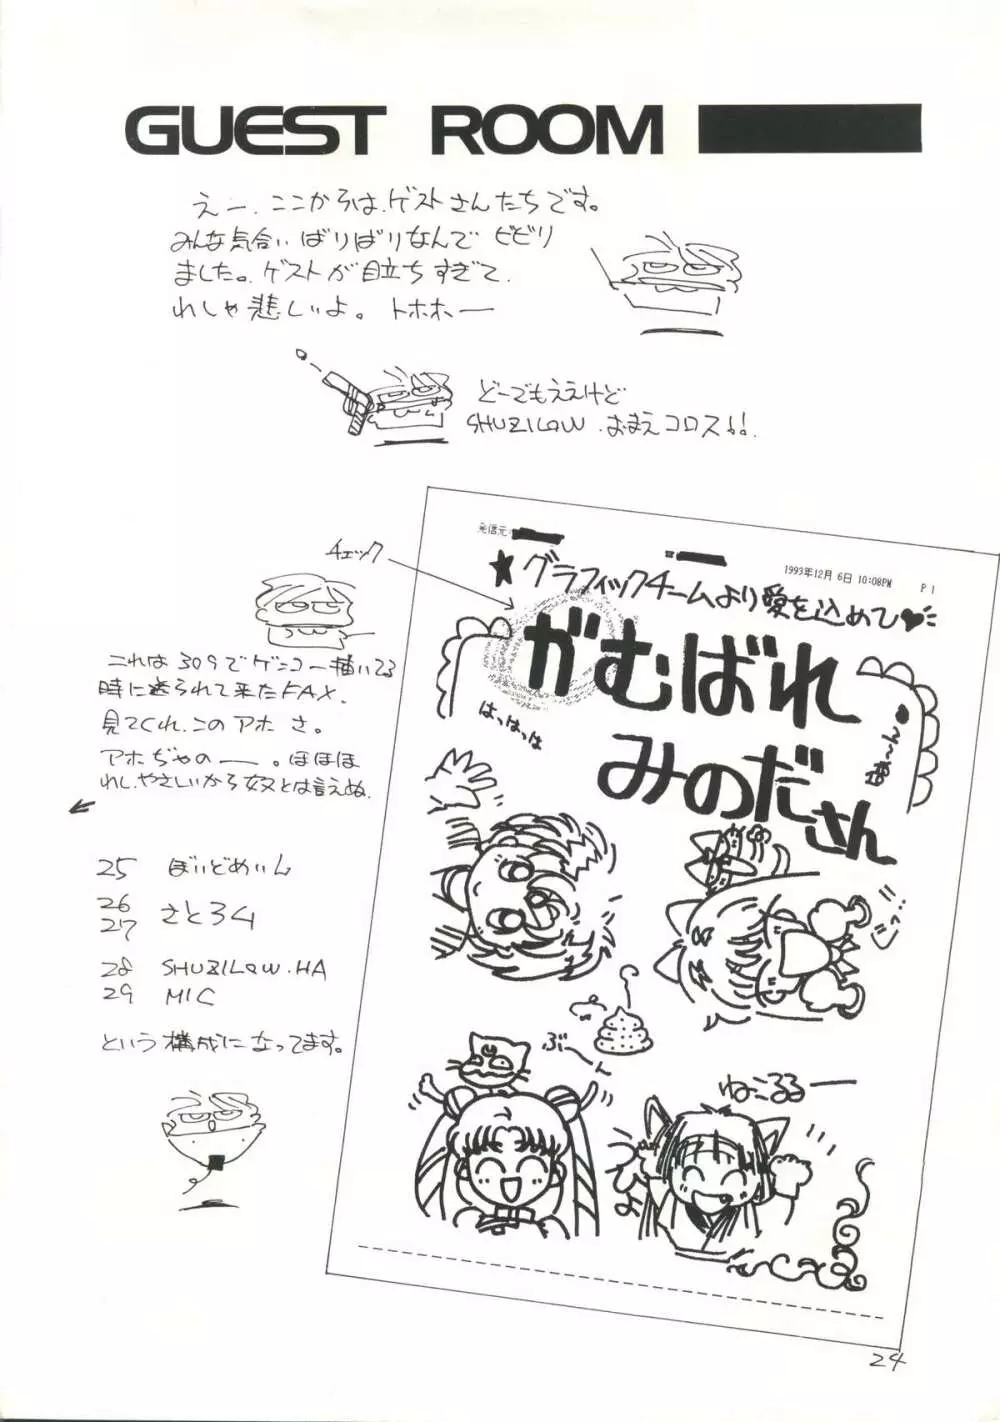 GUEST ROOM
えー、ここからは、ゲストさんたちです。
みんな気合いばりばりなんで ビビり
ました。ゲストが目立ちすぎて、
れしゃ悲しいよ。トホホー
どーでもええけど
SHUZILOW、おまえコロス!!
チェック
これは309でゲンコー描いてる
時に送られて来たFAX.
見てくれ、このアホさ。
アホぢゃのー。ほほほ
れし、やさしいから 奴とは言えぬ.
25 ぼいどめいん
26
27 さとろ4
28 SHUZILOW.HA
29 MIC
という構成になってます。
発信元:
1993年12月 6日 10:08PM P 1
★グラフィックチームより愛を込めて♥
がむばれ
みのださん
はっはっは
あ〜ん
じっ!!
ぶ〜ん
ねこるるー
24